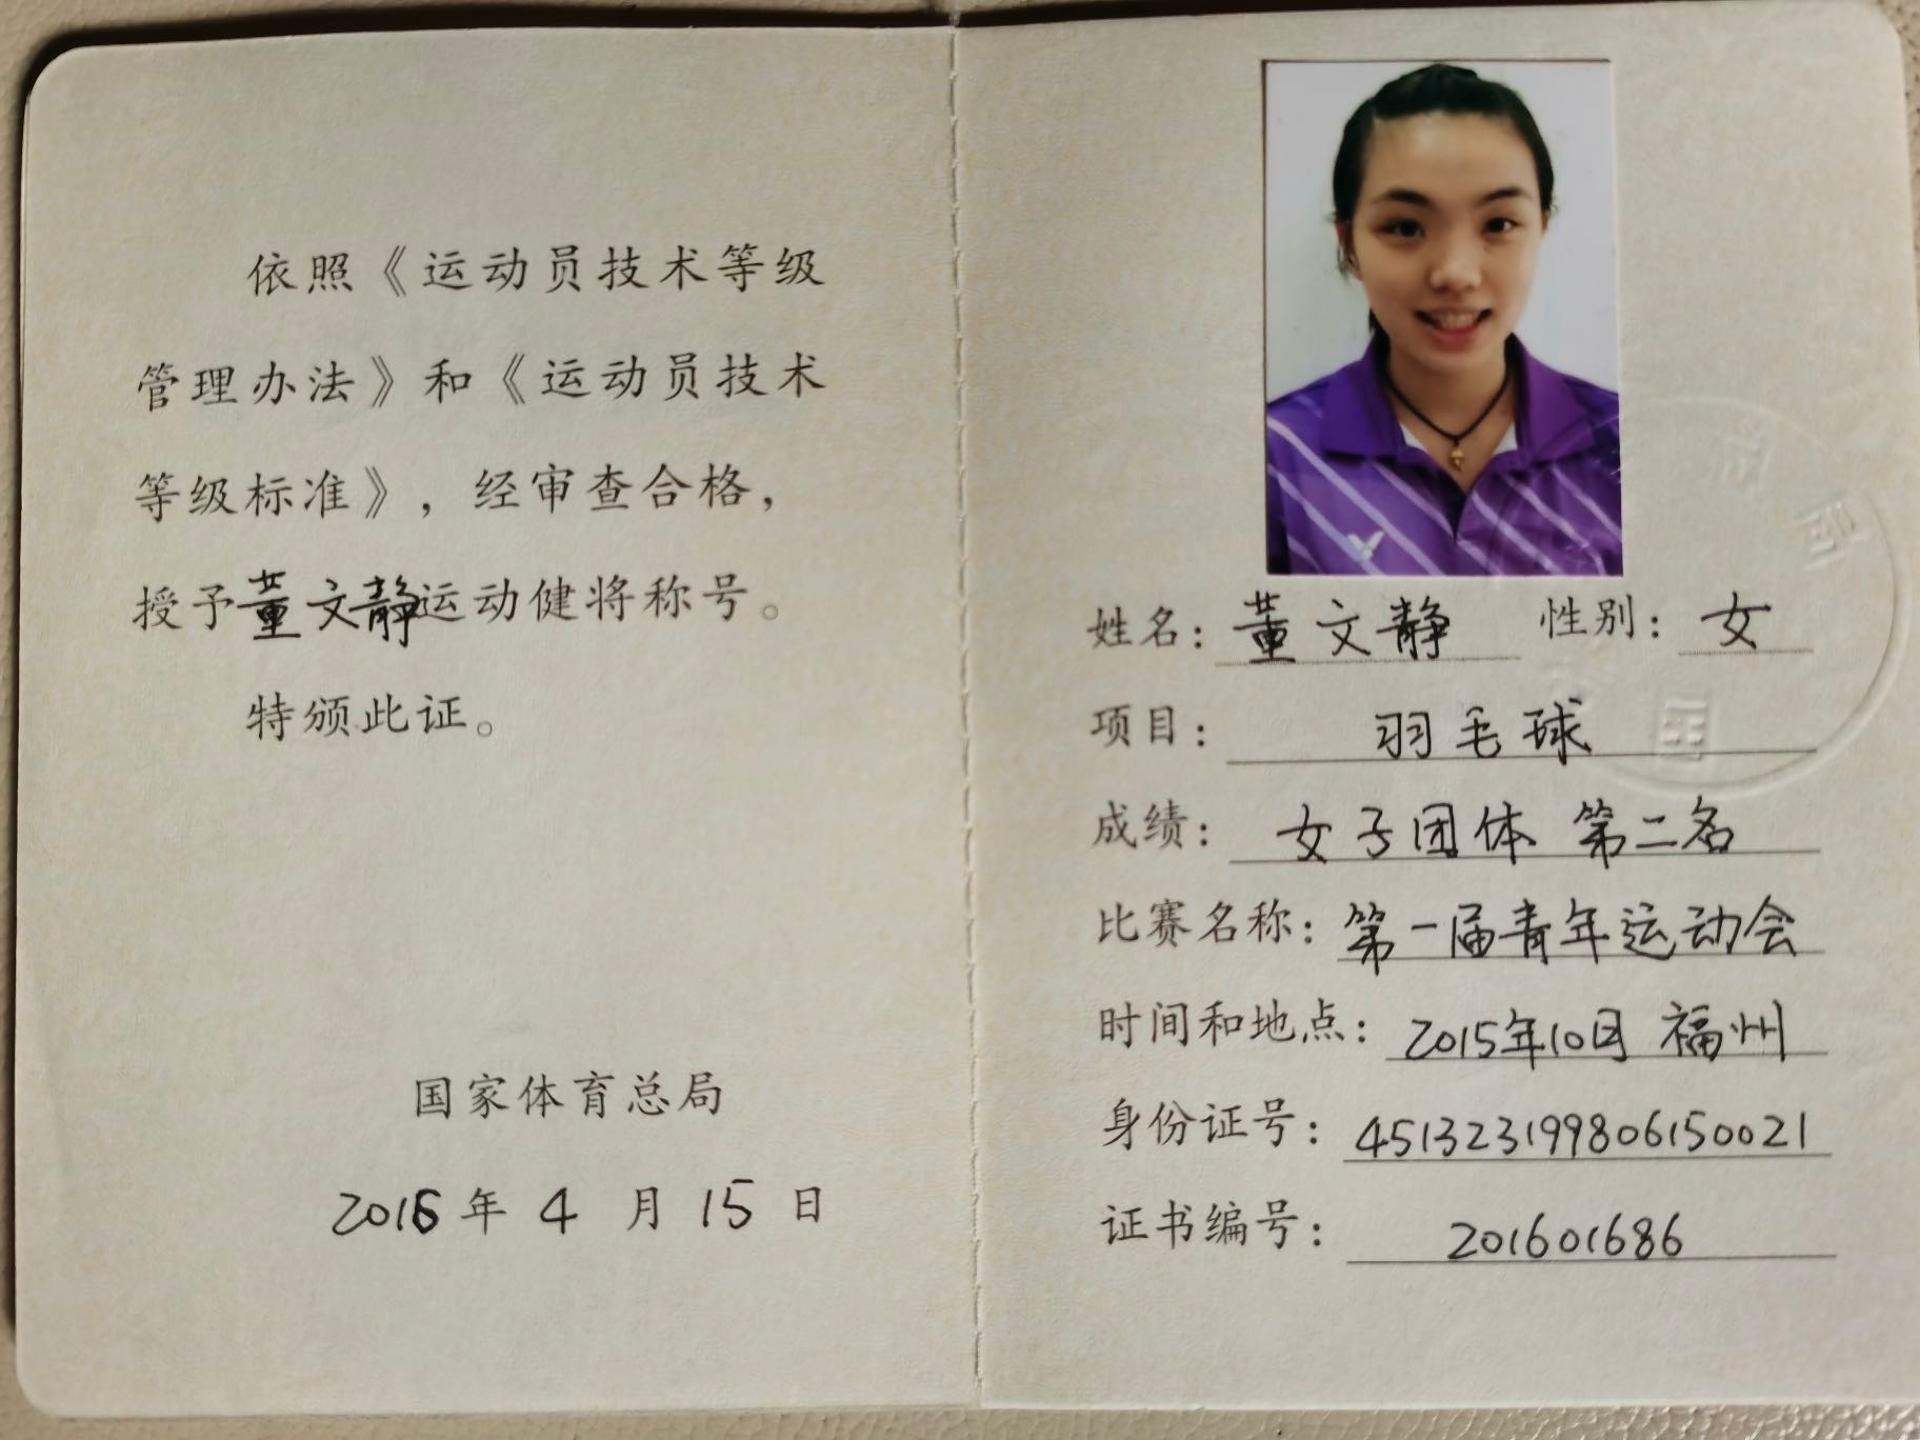 依照《运动员技术等级
管理办法》和《运动员技术
等级标准》，经审查合格，
授予董文静运动健将称号。
特颁此证。
国家体育总局
2016年 4 月 15 日
姓名：董文静 性别：女
项目：羽毛球
成绩：女子团体 第二名
比赛名称：第一届青年运动会
时间和地点：2015年10月 福州
身份证号：451323199806150021
证书编号：201601686